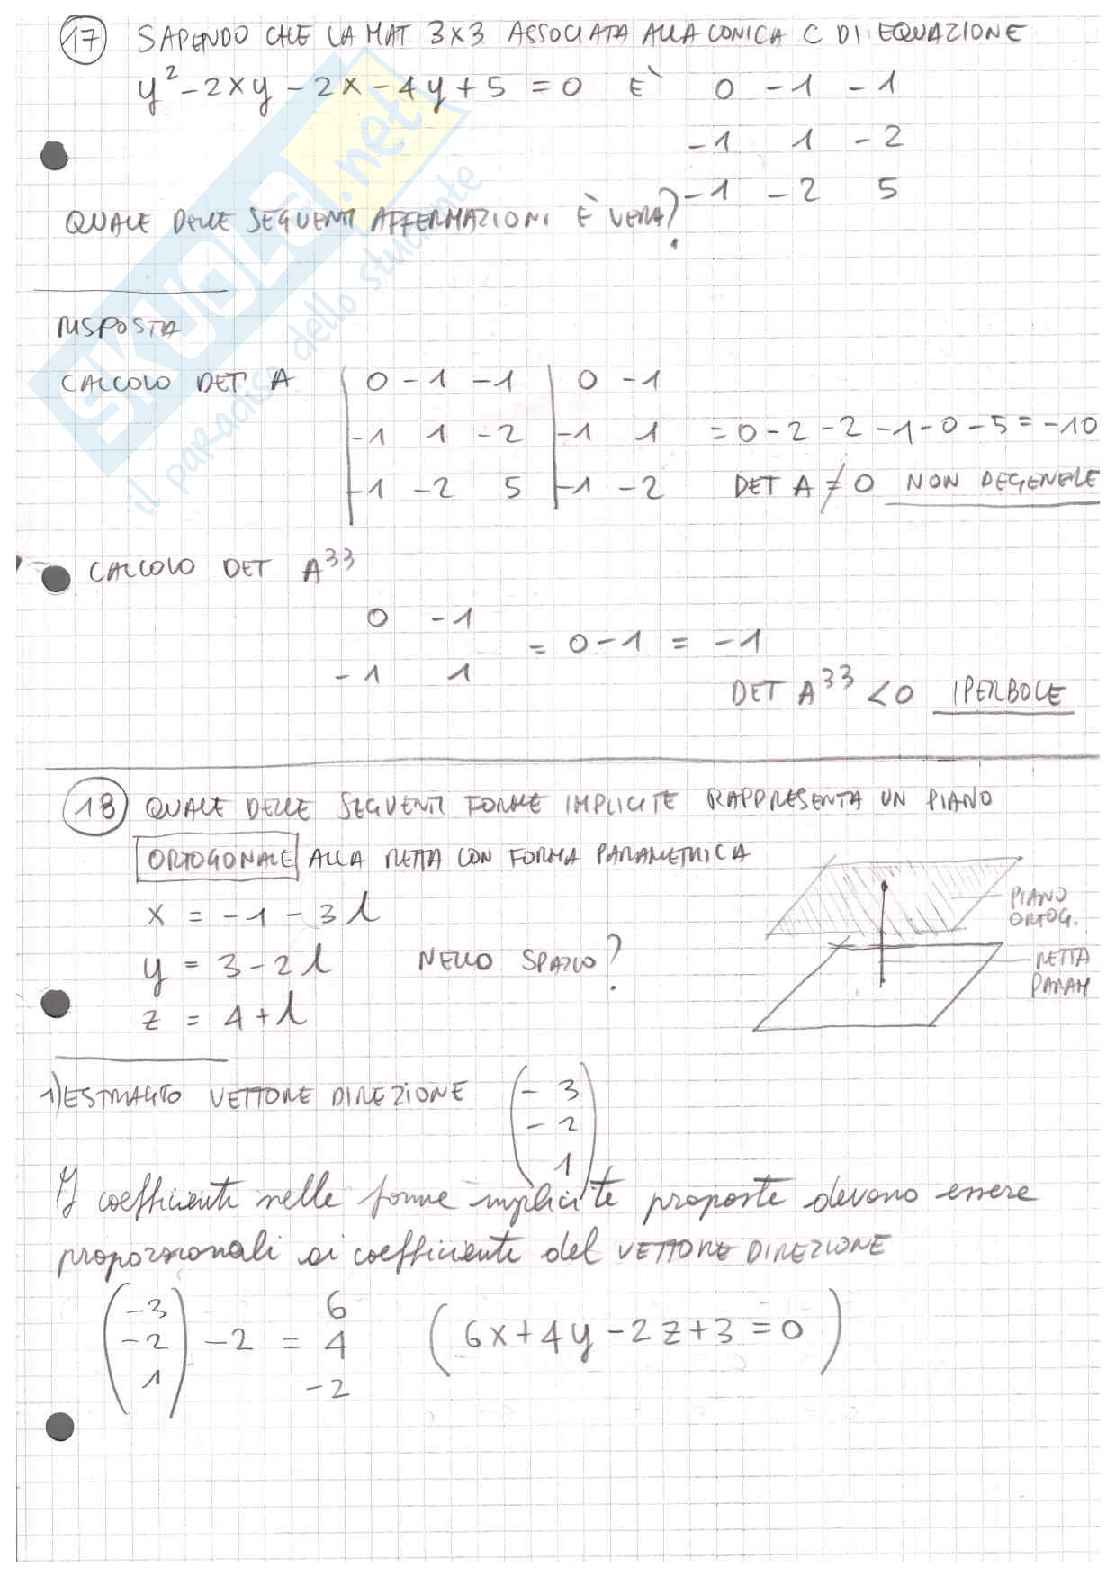 17 SAPENDO CHE LA MAT 3X3 ASSOCIATA ALLA CONICA C DI EQUAZIONE
y² - 2xy - 2x - 4y + 5 = 0 È 0 -1 -1
-1 1 -2
-1 -2 5
QUALE DELLE SEGUENTI AFFERMAZIONI È VERA?
RISPOSTA
CALCOLO DET A | 0 -1 -1 | 0 -1
|-1 1 -2 |-1 1 = 0-2-2-1-0-5 = -10
|-1 -2 5 |-1 -2 DET A ≠ 0 NON DEGENERE
CALCOLO DET A³³
0 -1
-1 1 = 0-1 = -1
DET A³³ < 0 IPERBOLE
18 QUALE DELLE SEGUENTI FORME IMPLICITE RAPPRESENTA UN PIANO
ORTOGONALE ALLA RETTA CON FORMA PARAMETRICA
x = -1 - 3l
y = 3 - 2l NELLO SPAZIO?
z = 4 + l
PIANO
ORTOG.
RETTA
PARAM
1) ESTRAGGO VETTORE DIREZIONE (-3
-2
1)
I coefficienti nelle forme implicite proposte devono essere
proporzionali ai coefficiente del VETTORE DIREZIONE
(-3 6
-2) -2 = 4 (6x+4y-2z+3=0)
1 -2
SKUOLA.net
il paradiso dello studente